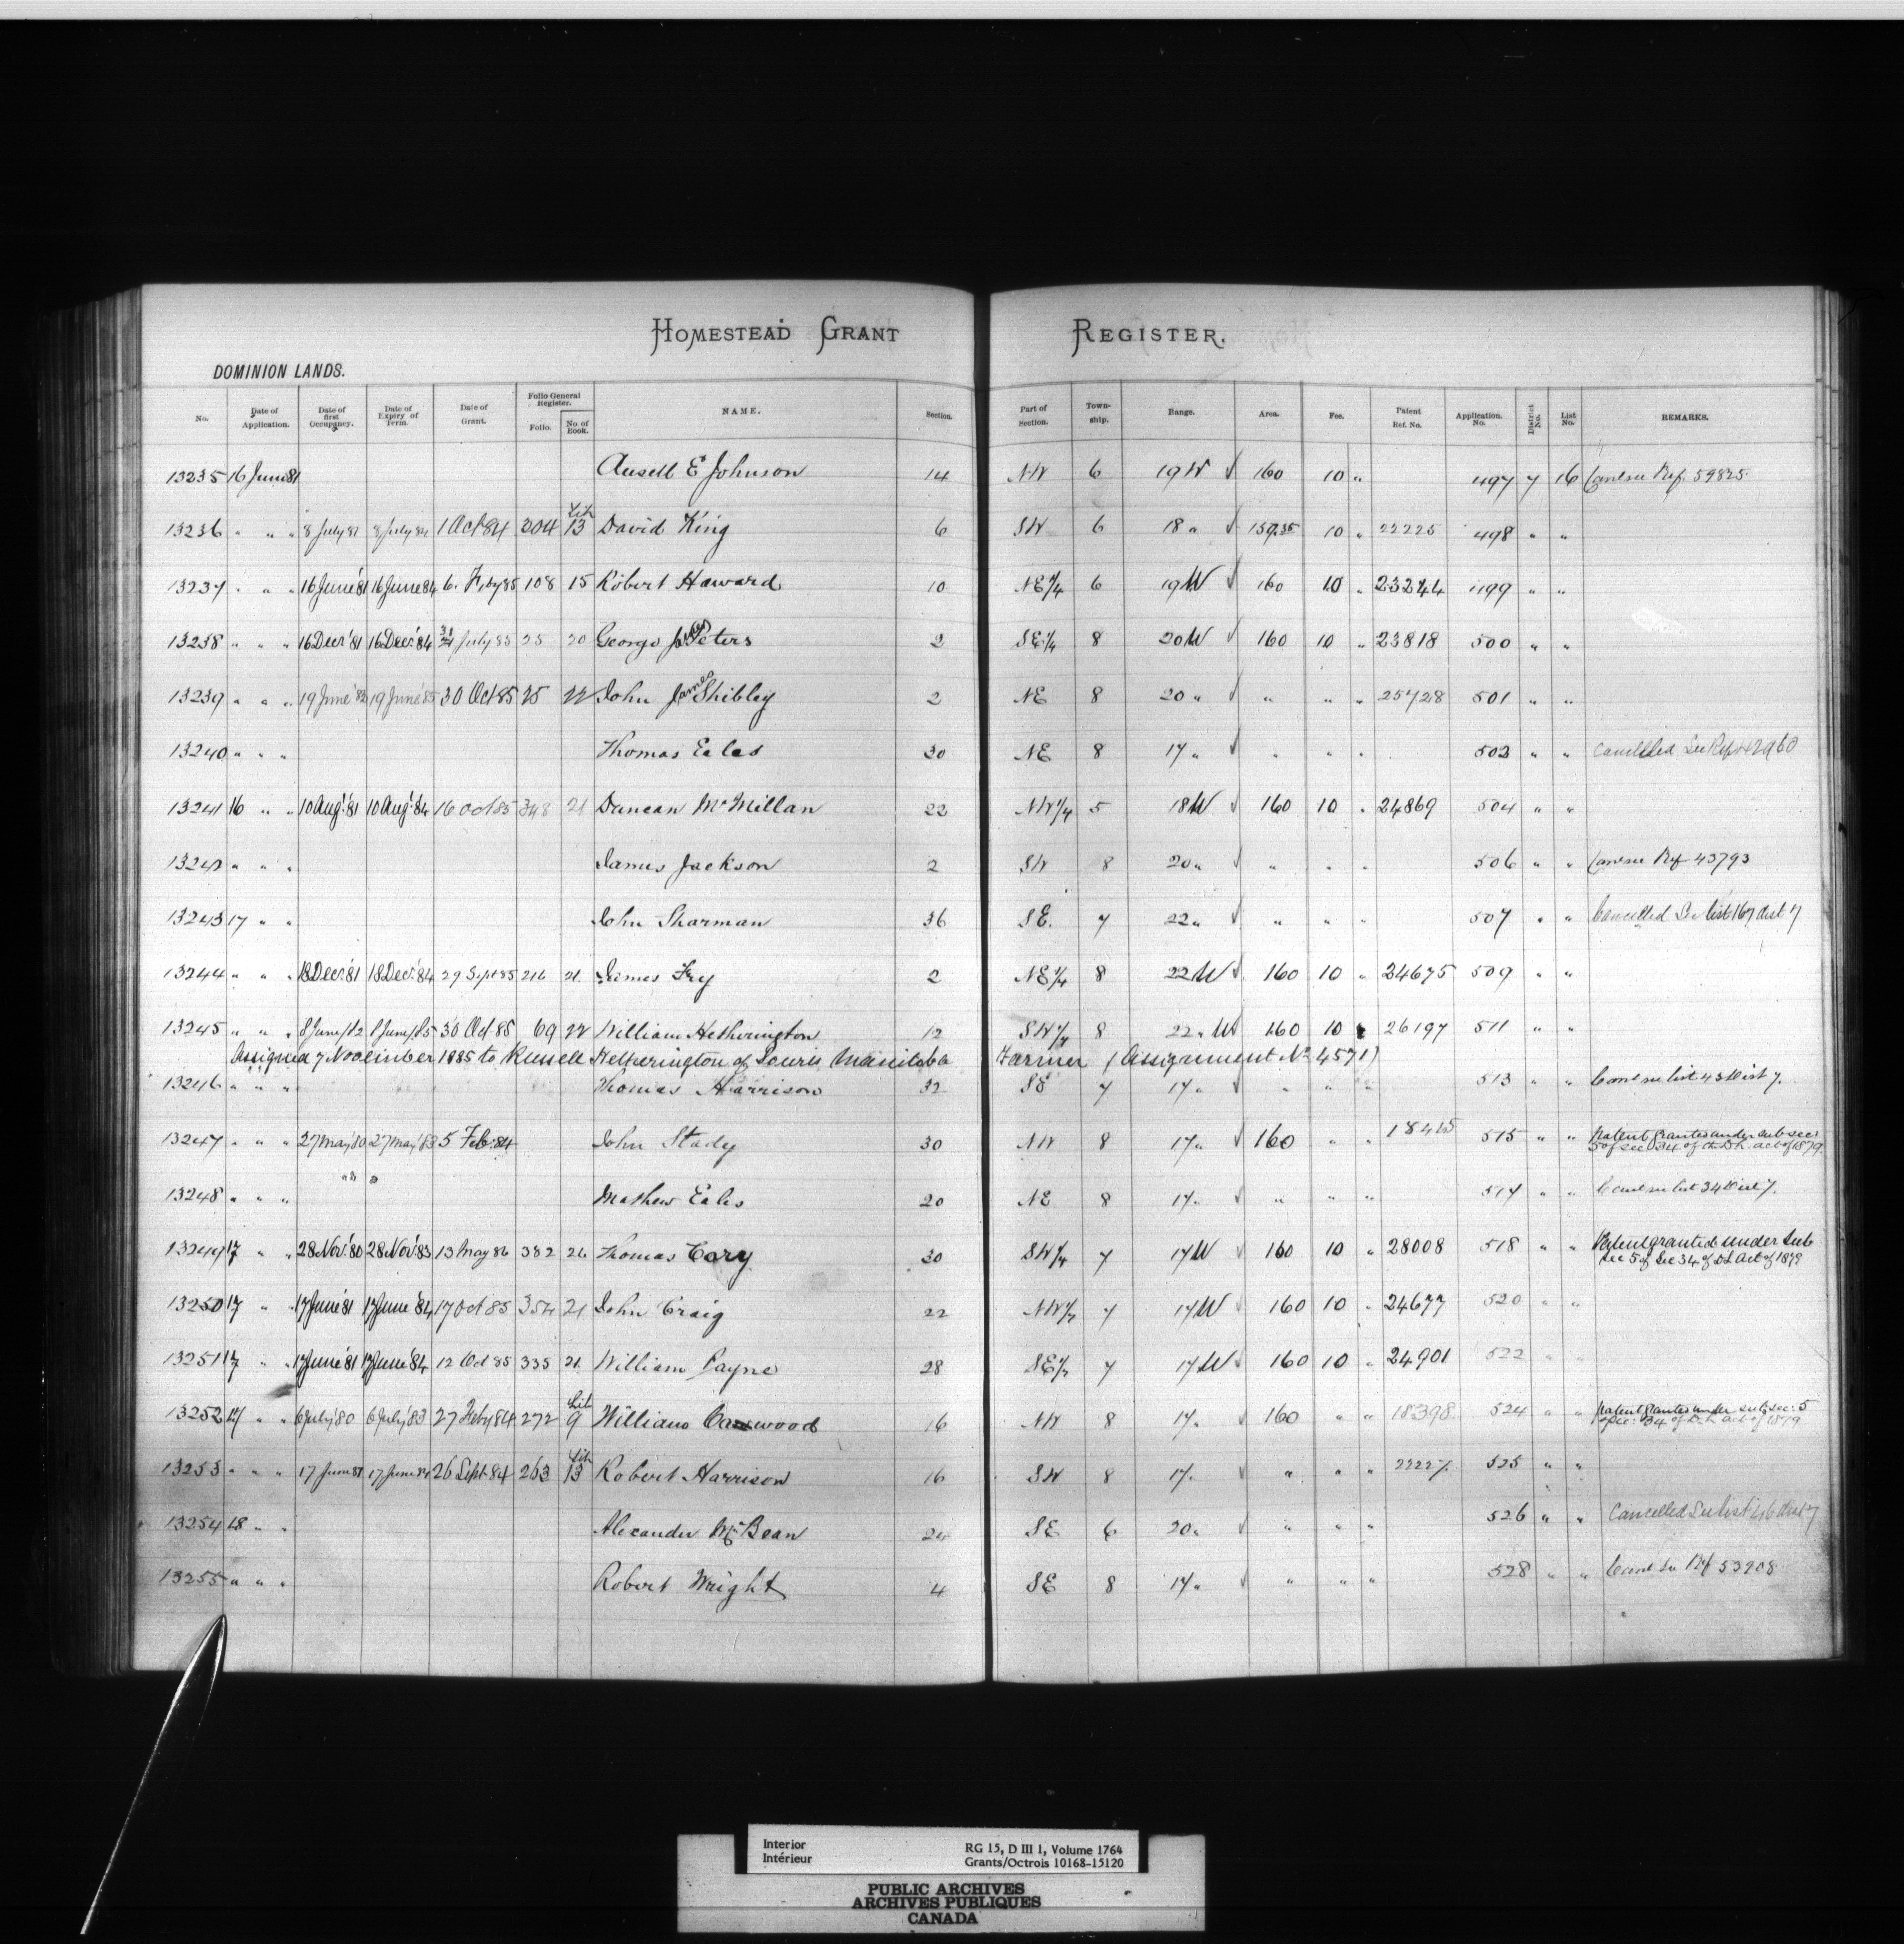 HOMESTEAD GRANT REGISTER.
DOMINION LANDS.
No. Date of Application. Date of first Occupancy. Date of Expiry of Term. Date of Grant. Folio General Register. Folio. No. of Book. NAME. Section. Part of Section. Town-ship. Range. Area. Fee. Patent Ref. No. Application. No. District No. List No. REMARKS.
13235 16 June 81 Ansell E Johnson 14 NW 6 19 W √ 160 10 " 497 7 16 Canc see Ref. 59825
13236 " " " 8 July 81 8 July 84 1 Oct 84 204 Lib 13 David King 6 SW 6 18 " √ 159.35 10 " 22225 498 " "
13237 " " " 16 June '81 16 June '84 6. Feby 85 108 15 Robert Haward 10 NE 1/4 6 19 W √ 160 10 " 23244 499 " "
13238 " " " 16 Decr '81 16 Decr '84 31 July 85 25 20 George James Peters 2 SE 1/4 8 20 W √ 160 10 " 23818 500 " "
13239 " " " 19 June '82 19 June '85 30 Oct 85 25 22 John James Shibley 2 NE 8 20 " √ " " " 25728 501 " "
13240 " " " Thomas Eales 30 NE 8 17 " √ " " " 503 " " Cancelled See Ref 42960
13241 16 " " 10 Augt '81 10 Augt '84 16 Oct 85 348 21 Duncan McMillan 22 NW 1/4 5 18 W √ 160 10 " 24869 504 " "
13242 " " " James Jackson 2 SW 8 20 " √ " " " 506 " " Canc see Ref 43793
13243 17 " " John Sharman 36 SE. 7 22 " √ " " " 507 " " Cancelled See list 167 dist 7
13244 " " " 18 Decr '81 18 Decr '84 29 Sept 85 216 21. James Fry 2 NE 1/4 8 22 W √ 160 10 " 24675 509 " "
13245 " " " 8 June/82 8 June/85 30 Oct 85 69 22 William Hetherington 12 SW 1/4 8 22 " W 160 10 " 26197 511 " "
Assigned 7 November 1885 to Russell Hetherington of Souris Manitoba Farmer (Assignment No 4571)
13246 " " " Thomas Harrison 32 SE 7 17 " √ " " " 513 " " Canc see list 43 Dist 7.
13247 " " " 27 May '80 27 May '83 5 Feb. 84 John Stady 30 NW 8 17 " √ 160 " " 18445 515 " " Patent granted under sub sec:
5 of sec 34 of the D.L. act of 1879.
13248 " " " Mathew Eales 20 NE 8 17 " √ " " " 517 " " Canc see list 34 Dist 7.
13249 17 " " 28 Nov. '80 28 Nov. '83 13 May 86 382 26 Thomas Cory 30 SW 1/4 7 17 W √ 160 10 " 28008 518 " " Patent granted under Sub
Sec 5 of Sec 34 of DL Act of 1879
13250 17 " " 17 June '81 17 June '84 17 Oct 85 354 21 John Craig 22 NW 1/4 7 17 W √ 160 10 " 24677 520 " "
13251 17 " " 17 June '81 17 June '84 12 Oct 85 335 21. William Payne 28 SE 1/4 7 17 W √ 160 10 " 24901 522 " "
13252 17 " " 6 July '80 6 July '83 27 Feby 84 272 Lib 9 William 16 NW 8 17. √ 160 " " 18398 524 " " Patent granted under sub sec: 5
of sec: 34 of D.L. act of 1879
13253 " " " 17 June 81 17 June 84 26 Sept. 84 263 Lib 13 Robert Harrison 16 SW 8 17. √ " " " 22227. 525 " "
13254 18 " " Alexander McBean 24 SE 6 20 " √ " " " 526 " " Cancelled See list 46 dist 7
13255 " " " Robert Wright 4 SE 8 17 " √ " " " 528 " " Canc See Ref 53908
Interior
Intérieur
RG 15, D III 1, Volume 1764
Grants/Octrois 10168-15120
PUBLIC ARCHIVES
ARCHIVES PUBLIQUES
CANADA